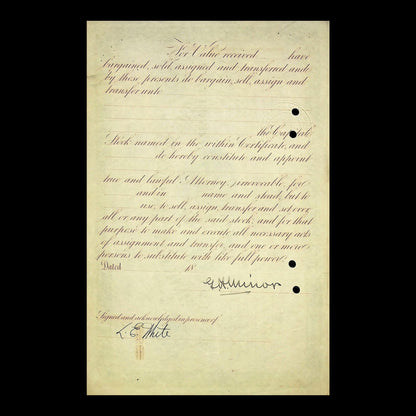 For Value received have
bargained, sold, assigned and transferred and
by these presents do bargain, sell, assign and
transfer unto
the Capital
Stock named in the within Certificate, and
do hereby constitute and appoint
true and lawful Attorney, irrevocable for
and in name and stead, but to
use, to sell, assign, transfer and set over
all or any part of the said stock, and for that
purpose to make and execute all necessary acts
of assignment and transfer, and one or more
persons to substitute with like full power.
Dated 18
G H Minor
Signed and acknowledged in presence of
L. E. White